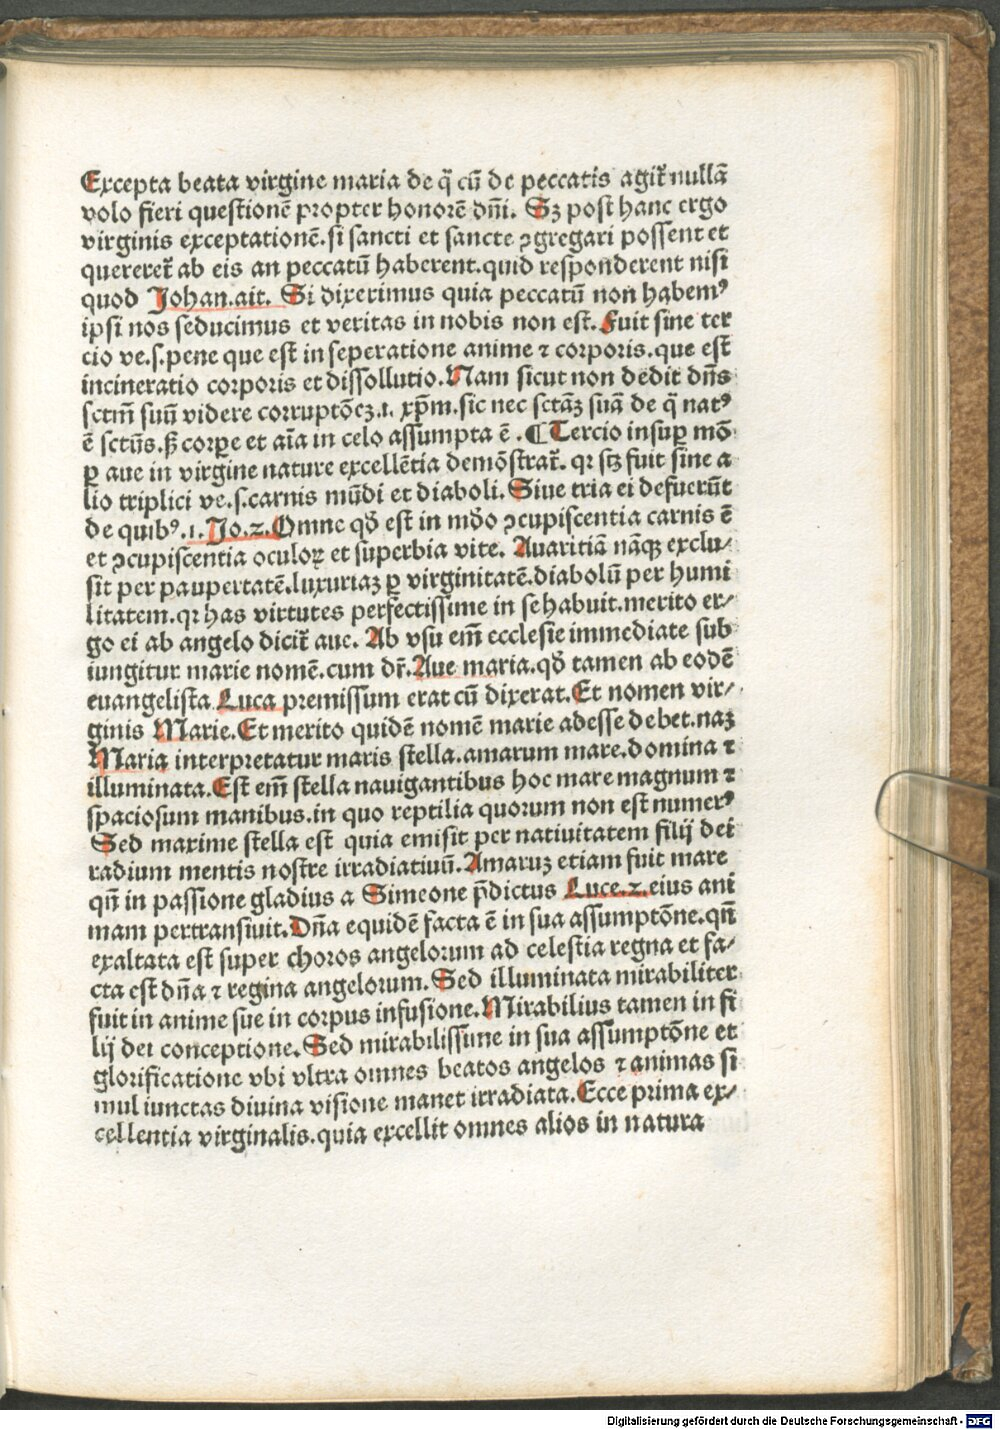 Excepta beata virgine maria de q̃ cũ de peccatis agit᷑ nullã
volo fieri questionẽ propter honorẽ dñi. Sꝫ post hanc ergo
virginis exceptationẽ.si sancti et sancte ꝯgregari possent et
quereret᷑ ab eis an peccatũ haberent.quid responderent nisi
quod Johan.ait. Si dixerimus quia peccatũ non habemꝰ
ipsi nos seducimus et veritas in nobis non est. Fuit sine ter
cio ve.s.pene que est in seperatione anime ⁊ corporis.que est
incineratio corporis et dissollutio. Nam sicut non dedit dñs
sctm̃ suũ videre corruptõeꝫ.i. xp̃m.sic nec sctãꝫ suã de q̃ natꝰ
ẽ sctũs.ß corꝑe et aĩa in celo assumpta ẽ .¶ Tercio insuꝑ mõ
ꝑ aue in virgine nature excellẽtia demõstrat᷑. qꝛ stꝫ fuit sine a
lio triplici ve.s.carnis mũdi et diaboli. Siue tria ei defuerũt
de quibꝰ.1. Jo.2. Omne qđ est in mđo ꝯcupiscentia carnis ẽ
et ꝯcupiscentia oculoꝝ et superbia vite. Auaritiã nãqꝫ exclu⸗
sit per paupertatẽ.luxuriaꝫ ꝑ virginitatẽ.diabolũ per humi
litatem.qꝛ has virtutes perfectissime in se habuit.merito er⸗
go ei ab angelo dicit᷑ aue. Ab vsu em̃ ecclesie immediate sub
iungitur marie nomẽ.cum dr̃. Aue maria.qđ tamen ab eodẽ
euangelista Luca premissum erat cũ dixerat. Et nomen vir⸗
ginis Marie. Et merito quidẽ nomẽ marie adesse debet.naꝫ
Maria interpretatur maris stella.amarum mare.domina ⁊
illuminata. Est em̃ stella nauigantibus hoc mare magnum ⁊
spaciosum manibus.in quo reptilia quorum non est numerꝰ
Sed maxime stella est quia emisit per natiuitatem filij dei
radium mentis nostre irradiatiuũ. Amaruꝫ etiam fuit mare
qñ in passione gladius a Simeone p̃dictus Luce.2. eius ani
mam pertransiuit. Dña equidẽ facta ẽ in sua assumptõne.qñ
exaltata est super choros angelorum ad celestia regna et fa⸗
cta est dña ⁊ regina angelorum. Sed illuminata mirabiliter
fuit in anime sue in corpus infusione. Mirabilius tamen in fi
lij dei conceptione. Sed mirabilissime in sua assumptõne et
glorificatione vbi vltra omnes beatos angelos ⁊ animas si
mul iunctas diuina visione manet irradiata. Ecce prima ex⸗
cellentia virginalis.quia excellit omnes alios in natura
Digitalisierung gefördert durch die Deutsche Forschungsgemeinschaft - DFG